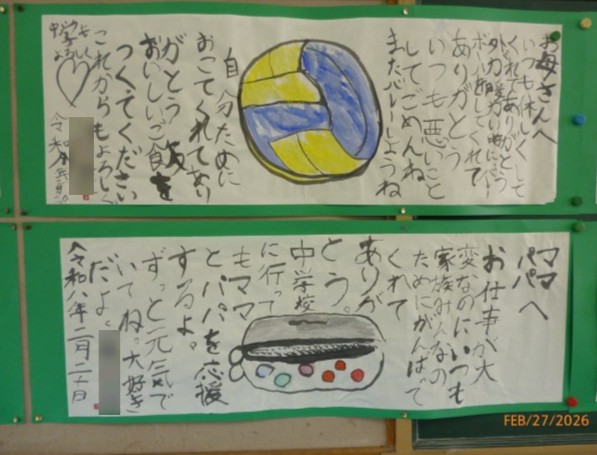 お母さんへ
くれてありがとう
ありがとう
いつも悪いこと
してごめんね
またバレーしようね
自分ために
おこてくれてあり
がとう
おいしいご飯を
つくてください
これからもよろしく
令和
ママ
パパへ
お仕事が大
変なのにいつも
家族みんなの
ためにがんばって
くれて
ありが
とう。
中学校
に行て
もママ
とパパを応援
するよ。
ずっと元気で
いてね。大好き
だよ。
令和八年二月二十日
FEB/27/2026